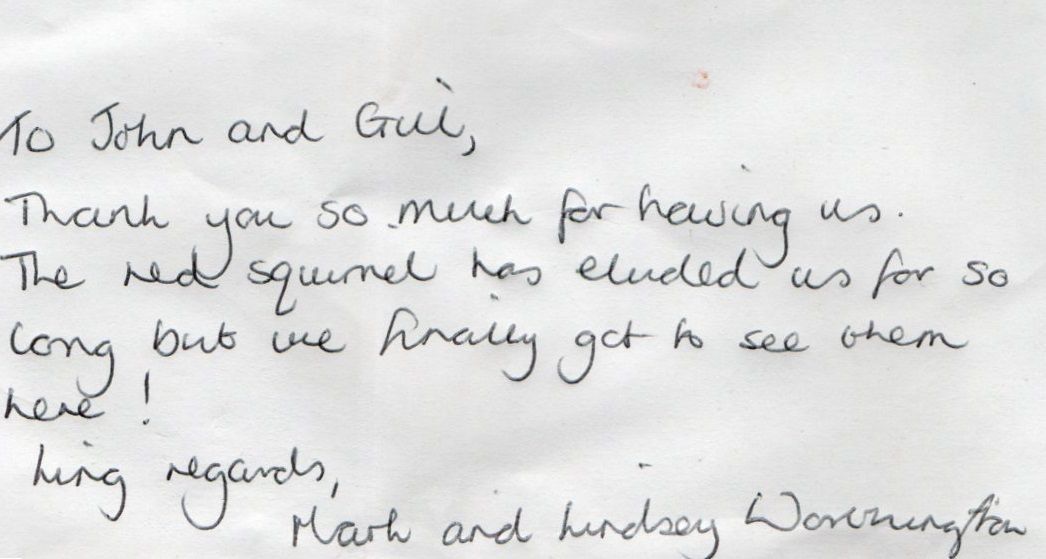 To John and Gill,
Thank you so much for having us.
The red squirrel has eluded us for so
long but we finally got to see them
here!
King regards,
Mark and Lindsey